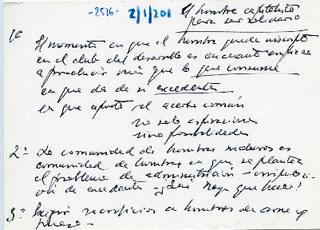 -2516- 2/1/201 El hombre capitalista
para ser solidario
1º El momento en que el hombre puede inscribirse
en el club del desarrollo es en cuanto empieza
a producir más que lo que consume
en que da de sí excedentes
en que aporta al acerbo común
no solo aspiraciones
sino posibilidades
2º La comunidad de hombres maduros es
comunidad de hombres en que se plantea
el problema de administración
de excedente - ¿Qué hay que hacer?
3º sacrificios a hombres de carne y
hueso